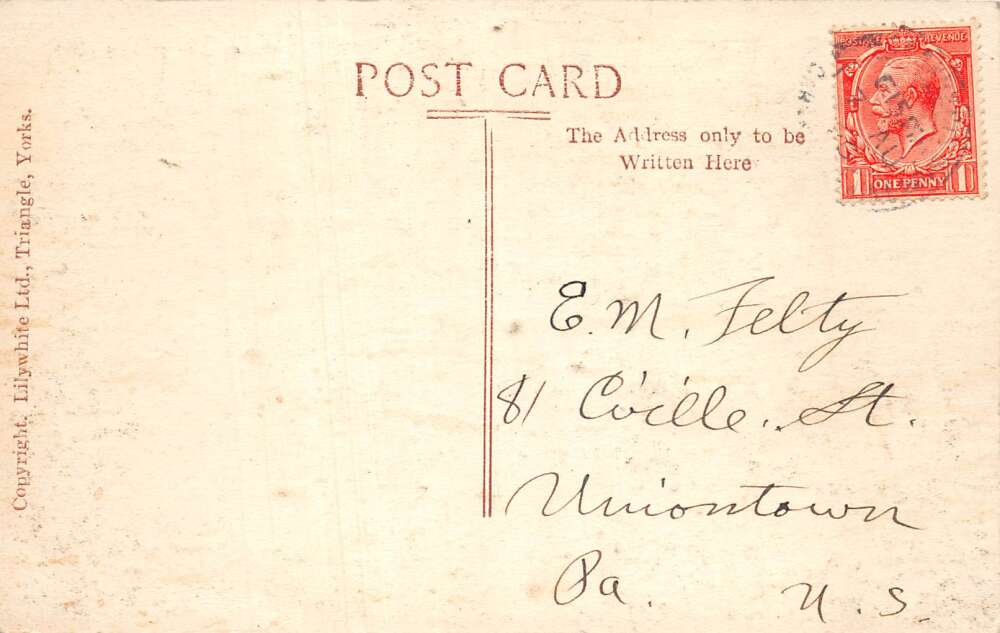 POST CARD
The Address only to be
Written Here
Copyright. Lilywhite Ltd., Triangle, Yorks.
POSTAGE REVENUE
1 ONE PENNY 1
E. M. Felty
81 C'ville. St.
Uniontown
Pa. U. S.